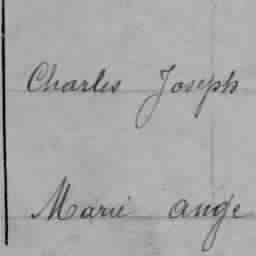 Charles Joseph
Marie ange